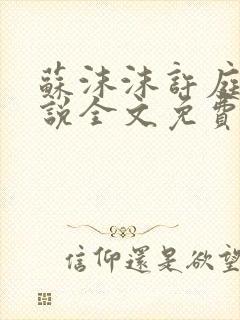 蘇沫沫許庭
說全文免費
信仰還是欲望